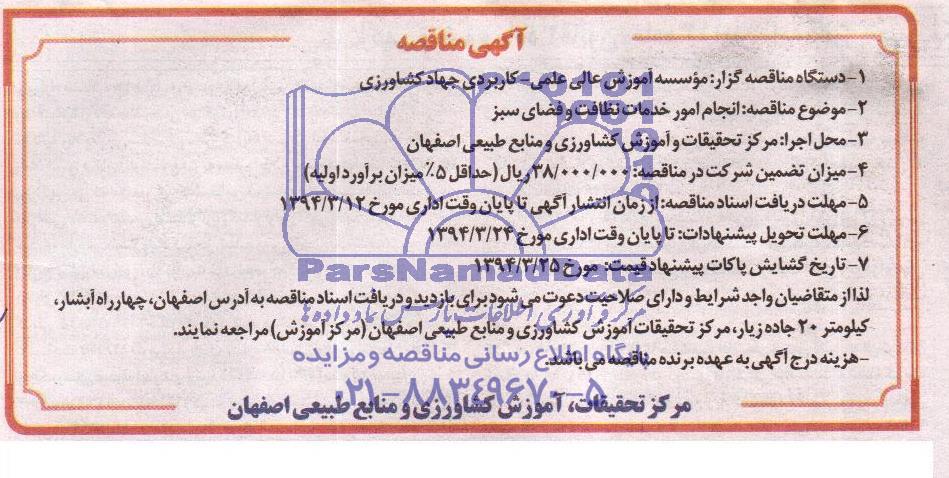 آگهی مناقصه
۱-دستگاه مناقصه گزار: مؤسسه آموزش عالی علمی-کاربردی جهاد کشاورزی
۲-موضوع مناقصه: انجام امور خدمات نظافت و فضای سبز
۳-محل اجرا: مرکز تحقیقات و آموزش کشاورزی و منابع طبیعی اصفهان
۴-میزان تضمین شرکت در مناقصه: ۳۸/۰۰۰/۰۰۰ ریال (حداقل ۵٪ میزان برآورد اولیه)
۵-مهلت دریافت اسناد مناقصه: از زمان انتشار آگهی تا پایان وقت اداری مورخ ۱۳۹۴/۳/۱۲
۶-مهلت تحویل پیشنهادات: تا پایان وقت اداری مورخ ۱۳۹۴/۳/۲۴
۷- تاریخ گشایش پاکات پیشنهاد قیمت: مورخ ۱۳۹۴/۳/۲۵
ParsNamadData
لذا از متقاضیان واجد شرایط و دارای صلاحیت دعوت می شود برای بازدید و دریافت اسناد مناقصه به آدرس اصفهان، چهارراه آبشار،
کیلومتر ۲۰ جاده زیار، مرکز تحقیقات آموزش کشاورزی و منابع طبیعی اصفهان (مرکز آموزش) مراجعه نمایند.
پایگاه اطلاع رسانی مناقصه و مزایده
-هزینه درج آگهی به عهده برنده مناقصه می باشد.
۰۲۱-۸۸۳۴۹۶۷۰-۵
مرکز تحقیقات، آموزش کشاورزی و منابع طبیعی اصفهان